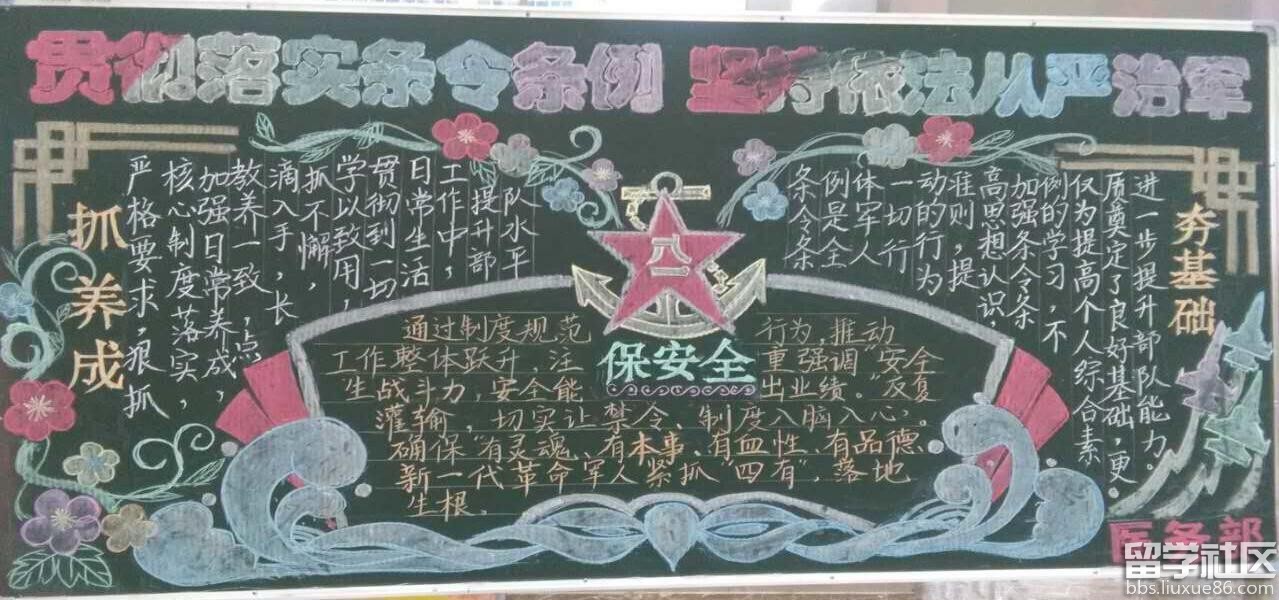 贯彻落实条令条例 坚持依法从严治军
抓养成
严格要求，狠抓
核心制度落实，
加强日常养成，
教养一致，点
滴入手，长
抓不懈，
学以致用，
贯彻到一切
日常生活
工作中，
提升部
队水平
保安全
通过制度规范行为，推动
工作整体跃升，注重强调“安全
生战斗力，安全能出业绩。”反复
灌输，切实让禁令、制度入脑入心，
确保“有灵魂、有本事、有血性、有品德
新一代革命军人紧抓“四有”，落地
生根、
夯基础
条令条
例是全
体军人
一切行
动的行为
准则，提
高思想认识，
加强条令条
例的学习，不
仅为提高个人综合素
质奠定了良好基础，更
进一步提升部队能力。
八一
医务部
留学社区
bbs.liuxue86.com